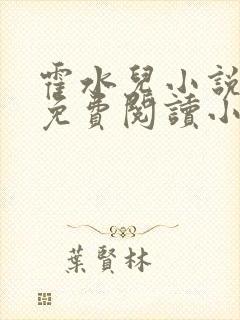 霍水兒小說
免費閱讀小
葉賢林